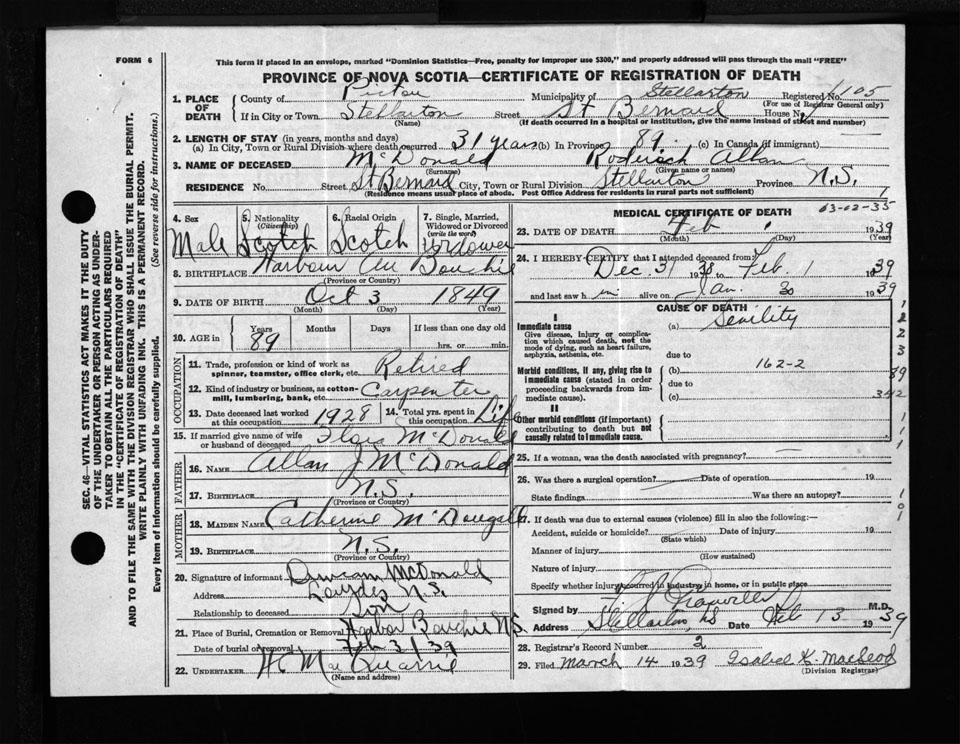 FORM 6
This form if placed in an envelope, marked "Dominion Statistics—Free, penalty for improper use $300," and properly addressed will pass through the mail "FREE"
PROVINCE OF NOVA SCOTIA—CERTIFICATE OF REGISTRATION OF DEATH
1. PLACE OF DEATH County of Pictou Municipality of Stellarton Registered No. 105
(For use of Registrar General only)
If in City or Town Stellarton Street St Bernard House No.
(Name) (If death occurred in a hospital or institution, give the name instead of street and number)
2. LENGTH OF STAY (in years, months and days)
(a) In City, Town or Rural Division where death occurred 31 years (b) In Province 89 (c) In Canada (if immigrant)
3. NAME OF DECEASED McDonald Roderick Allan
(Surname) (Given name or names)
RESIDENCE No. Street St Bernard City, Town or Rural Division Stellarton Province N.S.
(Residence means usual place of abode. Post Office Address for residents in rural parts not sufficient)
4. Sex Male
5. Nationality (Citizenship) Scotch
6. Racial Origin Scotch
7. Single, Married, Widowed or Divorced (write the word) Widower
8. BIRTHPLACE Harbour Au Bouchie
(Province or Country)
9. DATE OF BIRTH Oct 3 1849
(Month) (Day) (Year)
10. AGE in Years 89 Months Days If less than one day old
hrs. or min.
OCCUPATION
11. Trade, profession or kind of work as spinner, teamster, office clerk, etc. Retired
12. Kind of industry or business, as cotton-mill, lumbering, bank, etc. Carpenter
13. Date deceased last worked at this occupation 1928 14. Total yrs. spent in this occupation Life
15. If married give name of wife or husband of deceased McDonald
FATHER
16. NAME Allan J McDonald
17. BIRTHPLACE N.S.
(Province or Country)
MOTHER
18. MAIDEN NAME Catherine McDougall
19. BIRTHPLACE N.S.
(Province or Country)
20. Signature of informant Duncan McDonald
Address Lourdes N.S.
Relationship to deceased Son
21. Place of Burial, Cremation or Removal Harbor Bouchie N.S.
Date of burial or removal Feb 3/39
22. UNDERTAKER H. MacQuarrie
(Name and address)
MEDICAL CERTIFICATE OF DEATH 63-02-35
23. DATE OF DEATH Feb 1 1939
(Month) (Day) (Year)
24. I HEREBY CERTIFY that I attended deceased from:
Dec. 31 1938 to Feb. 1 1939
and last saw him alive on Jan. 30 1939
CAUSE OF DEATH
I
Immediate cause (a) Senility
Give disease, injury or complication which caused death, not the mode of dying, such as heart failure, asphyxia, asthenia, etc.
due to
Morbid conditions, if any, giving rise to immediate cause (stated in order proceeding backwards from immediate cause). (b) 162-2
due to
(c)
II
Other morbid conditions (if important) contributing to death but not causally related to immediate cause.
25. If a woman, was the death associated with pregnancy?
26. Was there a surgical operation? Date of operation 19
State findings Was there an autopsy?
27. If death was due to external causes (violence) fill in also the following:—
Accident, suicide or homicide? Date of injury 19
(State which)
Manner of injury
(How sustained)
Nature of injury
Specify whether injury occurred in industry, in home, or in public place
Signed by M.D.
Address Stellarton, N.S Date Feb 13 1939
28. Registrar's Record Number 2
29. Filed March 14 1939 Isabel K. MacLeod
(Division Registrar)
SEC. 46—VITAL STATISTICS ACT MAKES IT THE DUTY
OF THE UNDERTAKER OR PERSON ACTING AS UNDER-
TAKER TO OBTAIN ALL THE PARTICULARS REQUIRED
IN THE "CERTIFICATE OF REGISTRATION OF DEATH"
AND TO FILE THE SAME WITH THE DIVISION REGISTRAR WHO SHALL ISSUE THE BURIAL PERMIT.
WRITE PLAINLY WITH UNFADING INK. THIS IS A PERMANENT RECORD.
Every item of information should be carefully supplied. (See reverse side for instructions.)